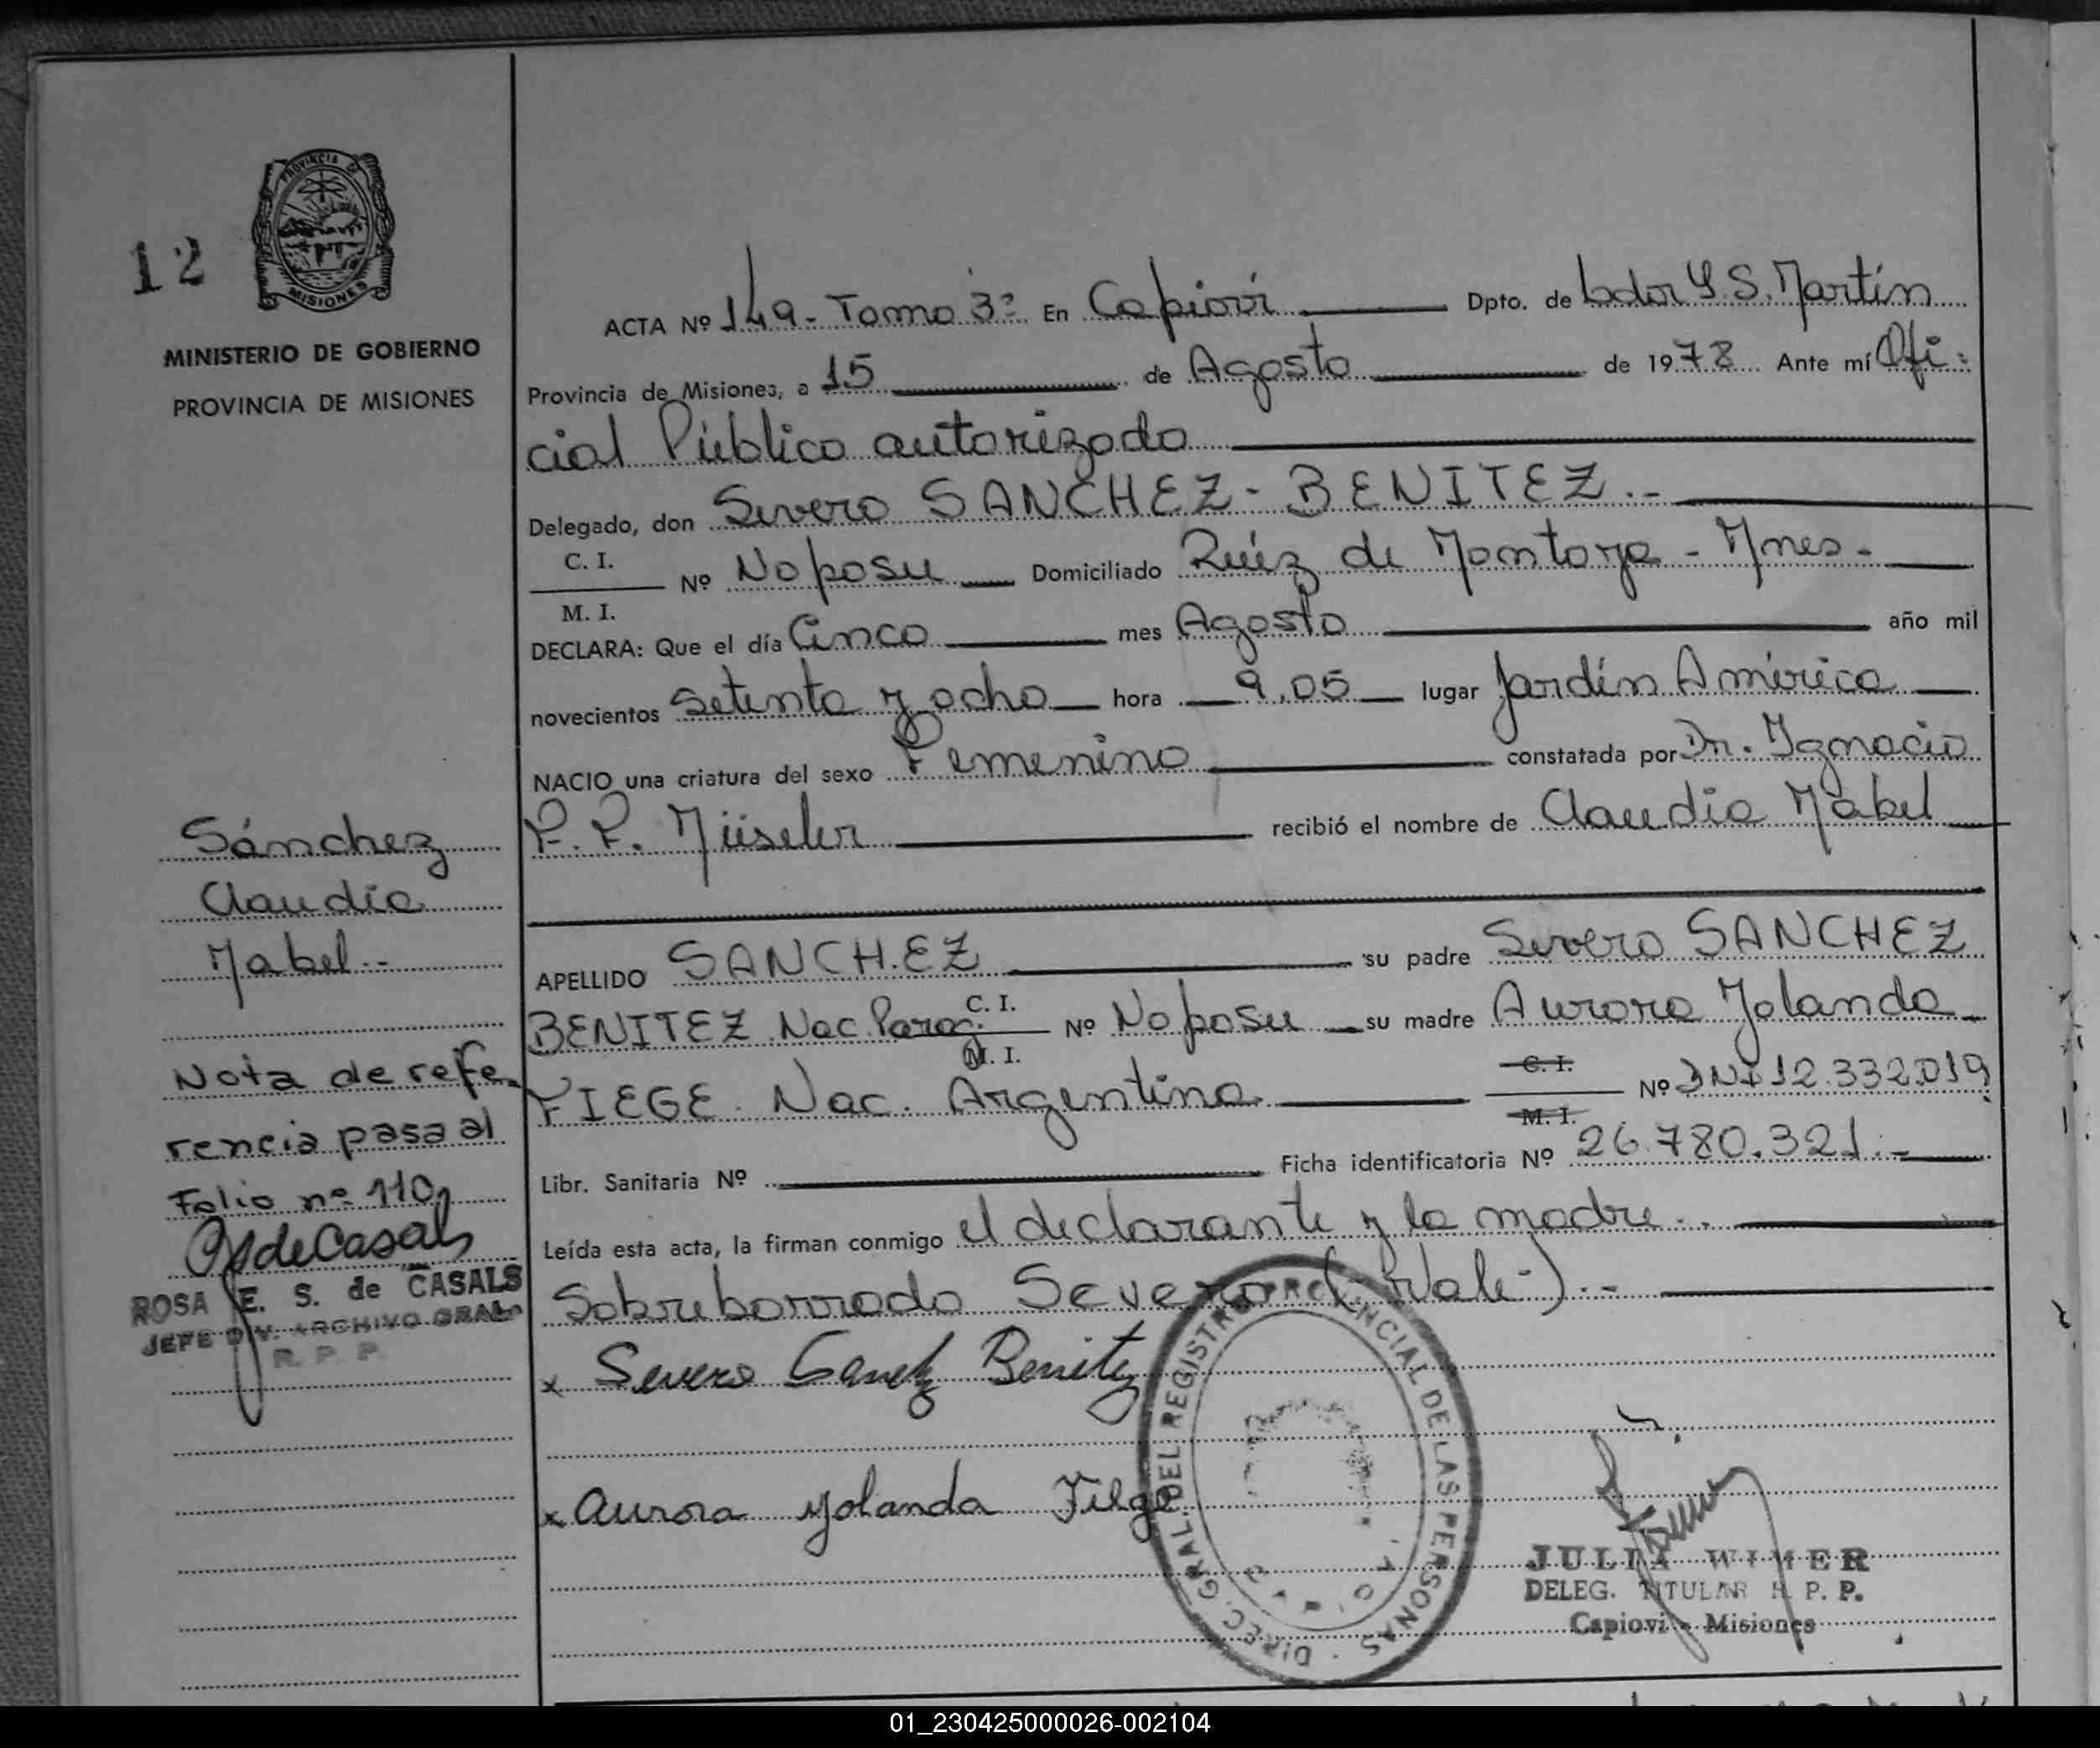 PROVINCIA DE
MISIONES
12
MINISTERIO DE GOBIERNO
PROVINCIA DE MISIONES
ACTA Nº 149.- Tomo 3º En Capioví Dpto. de Ldor G. S. Martín
Provincia de Misiones, a 15 de Agosto de 1978 Ante mí Ofi-
cial Público autorizado
Delegado, don Severo SANCHEZ - BENITEZ.-
C. I.
Nº No posee Domiciliado Ruíz de Montoya - Mnes-
M. I.
DECLARA: Que el día Cinco mes Agosto año mil
novecientos Setenta y ocho hora 9,05 lugar Jardín América
NACIO una criatura del sexo Femenino constatada por Dr. Ignacio
F. F. Müseler recibió el nombre de Claudia Mabel
Sánchez
Claudia
Mabel.-
APELLIDO SANCHEZ su padre Severo SANCHEZ
BENITEZ Nac. Parag. C. I. Nº No posee su madre Aurora Yolanda
M. I.
FIEGE Nac. Argentina C. I. Nº DNI 12.332.019
M. I.
Libr. Sanitaria Nº Ficha identificatoria Nº 26.780.321.-
Leída esta acta, la firman conmigo el declarante y la madre..
Sobreborrado Severo (-Vale-).-
Nota de refe-
rencia pasa al
Folio nº 110
OSdeCasals
ROSA E. S. de CASALS
JEFE DIV. ARCHIVO GRAL.
R. P. P.
x Severo Sanchez Benitez
x Aurora Yolanda Fiege
DIREC. GRAL. DEL REGISTRO PROVINCIAL DE LAS PERSONAS
JULIA WIMER
DELEG. TITULAR R. P. P.
Capioví - Misiones
01_230425000026-002104